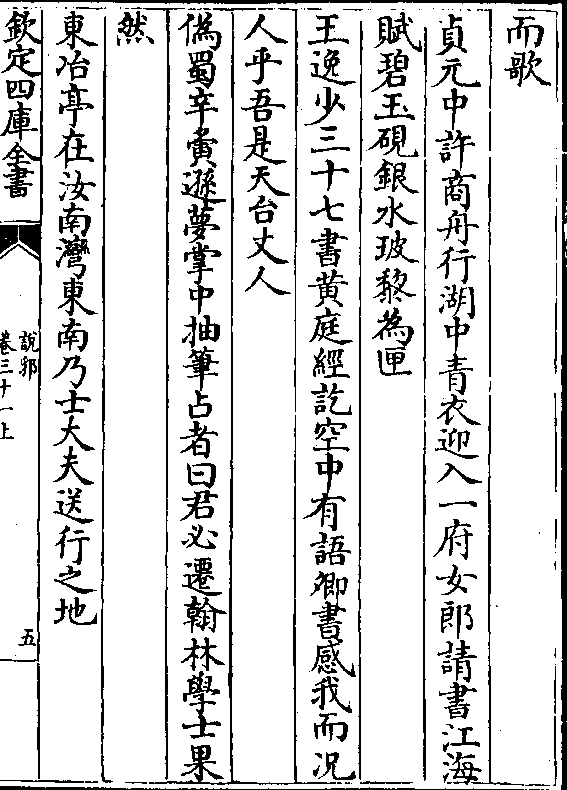 而歌
貞元中許商舟行湖中青衣迎入一府女郎請書江海
賦碧玉硯銀水玻黎為匣
王逸少三十七書黄庭經訖空中有語卿書感我而况
人乎吾是天台丈人
偽蜀辛夤遜夢掌中抽筆占者曰君必遷翰林學士果
然
東冶亭在汝南灣東南乃士大夫送行之地
欽定四庫全書
說郛
卷三十一上
五